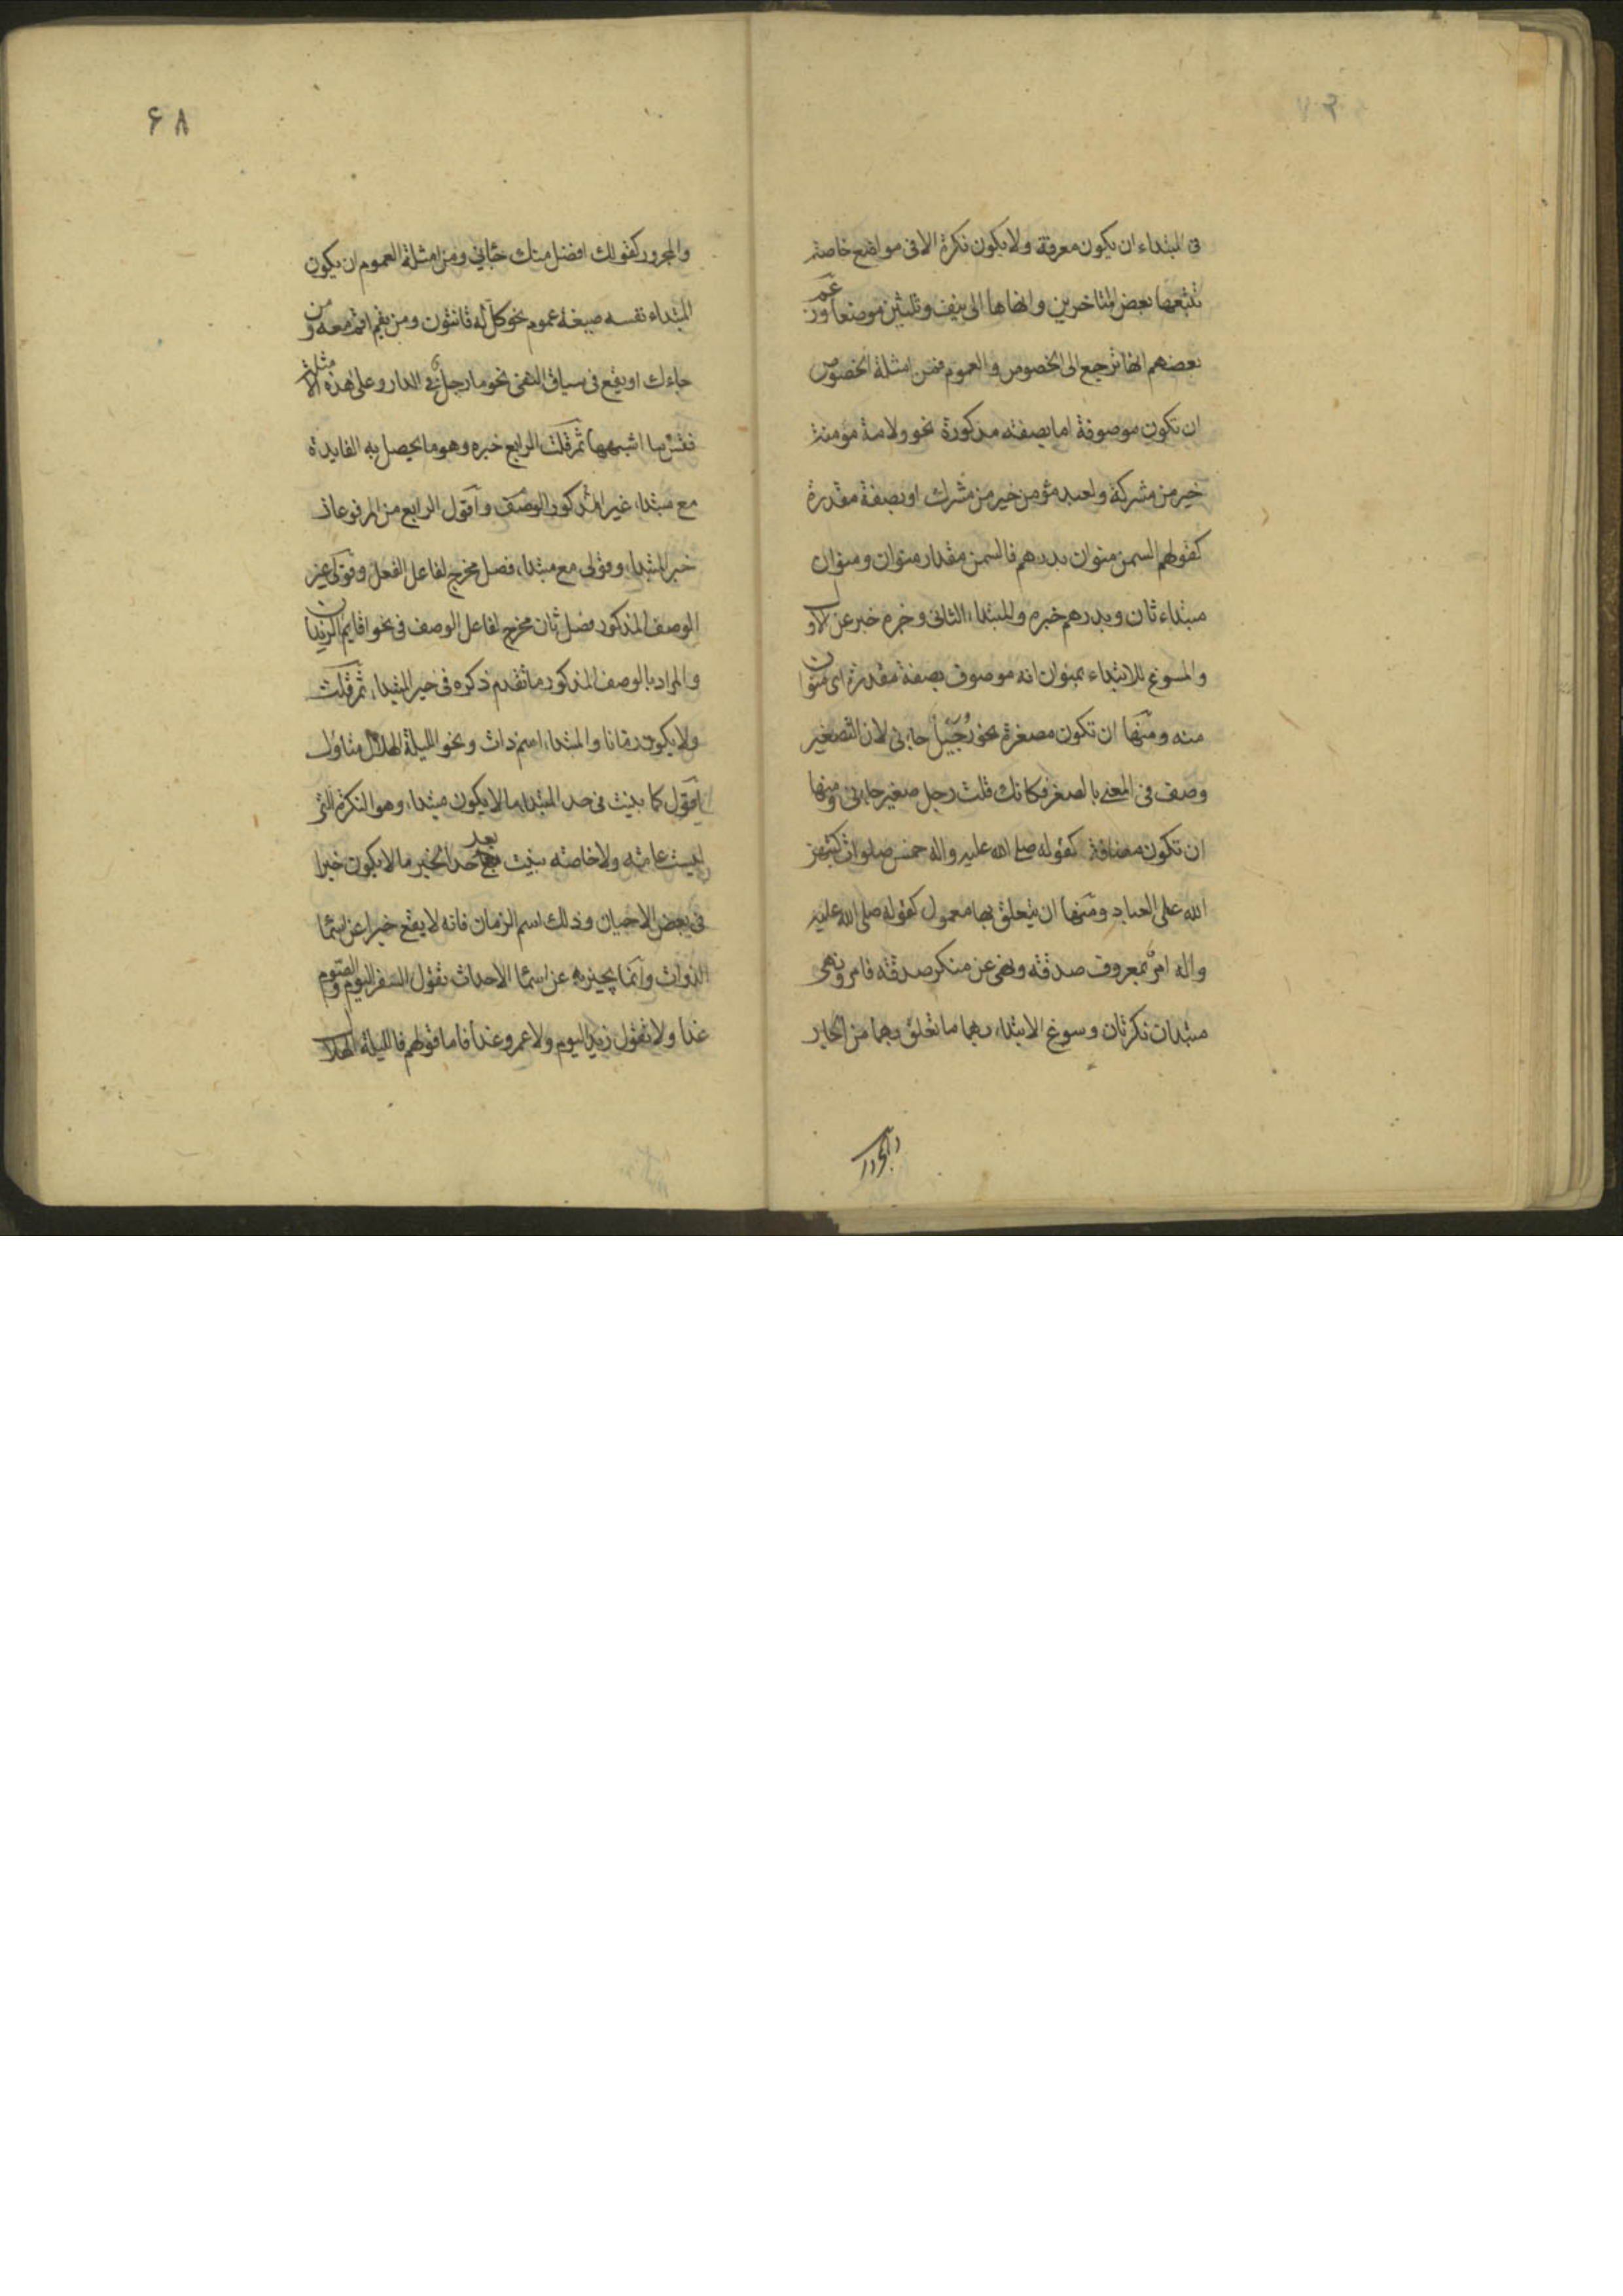 فی المبتداء ان یکون معرفة ولا یکون نکرة الا فی مواضع خاصة
تتبعها بعض المتاخرین وانهاها الی نیف وثلثین موضعا وزعم
بعضهم انها ترجع الی الخصوص والعموم فمن امثلة الخصوص
ان تکون موصوفة اما بصفة مذکورة نحو ولامة مؤمنة
خیر من مشرکة ولعبد مؤمن خیر من مشرك او بصفة مقدرة
کقولهم السمن منوان بدرهم فالسمن مقدار منوان ومنوان
مبتداء ثان وبدرهم خبره والمبتداء الثانی وخبره خبر عن الاول
والمسوغ للابتداء بمنوان انه موصوف بصفة مقدرة ای منوان
منه ومنها ان تکون مصغرة نحو رُجَیلٌ جاءنی لان التصغیر
وصف فی المعنی بالصغر فکانك قلت رجل صغیر جاءنی ومنها
ان تکون مضافة کقوله صلی الله علیه واله خمس صلوات کتبهن
الله علی العباد ومنها ان یتعلق بها معمول کقوله صلی الله علیه
واله امرٌ بمعروف صدقة ونهی عن منکر صدقة فامر ونهی
مبتدان نکرتان وسوغ الابتداء بهما ما تعلق بهما من الجار
والمجرور
۶۸
والمجرور کقولك افضل منك جاءنی ومن امثلة العموم ان یکون
المبتداء نفسه صیغة عموم نحو کل له قانتون ومن یقم اقم معه ومن
جاءك او یقع فی سیاق النفی نحو ما رجل فی الدار وعلی هذه الامثلة
فقس ما اشبهها ثم قلت الرابع خبره وهو ما یحصل به الفایدة
مع مبتداء غیر المذکور الوصف واقول الرابع من المرفوعات
خبر المبتداء وقولی مع مبتداء فصل مخرج لفاعل الفعل وقولی غیر
الوصف المذکور فصل ثان مخرج لفاعل الوصف فی نحو اقایم الزیدان
والمراد بالوصف المذکور ما تقدم ذکره فی حد المبتداء ثم قلت
ولا یکون زمانا والمبتداء اسم ذات ونحو اللیلة الهلال متاول
اقول کما بینت فی حد المبتداء ما لا یکون مبتداء وهو النکرة التی
لیست عامة ولا خاصة بینت بعد حد الخبر ما لا یکون خبرا
فی بعض الاحیان وذلك اسم الزمان فانه لا یقع خبرا عن اسما
الذوات وانما یخبر به عن اسما الاحداث تقول السفر الیوم والصوم
غدا ولا تقول زید الیوم ولا عمرو غدا فاما قولهم فاللیلة الهلال